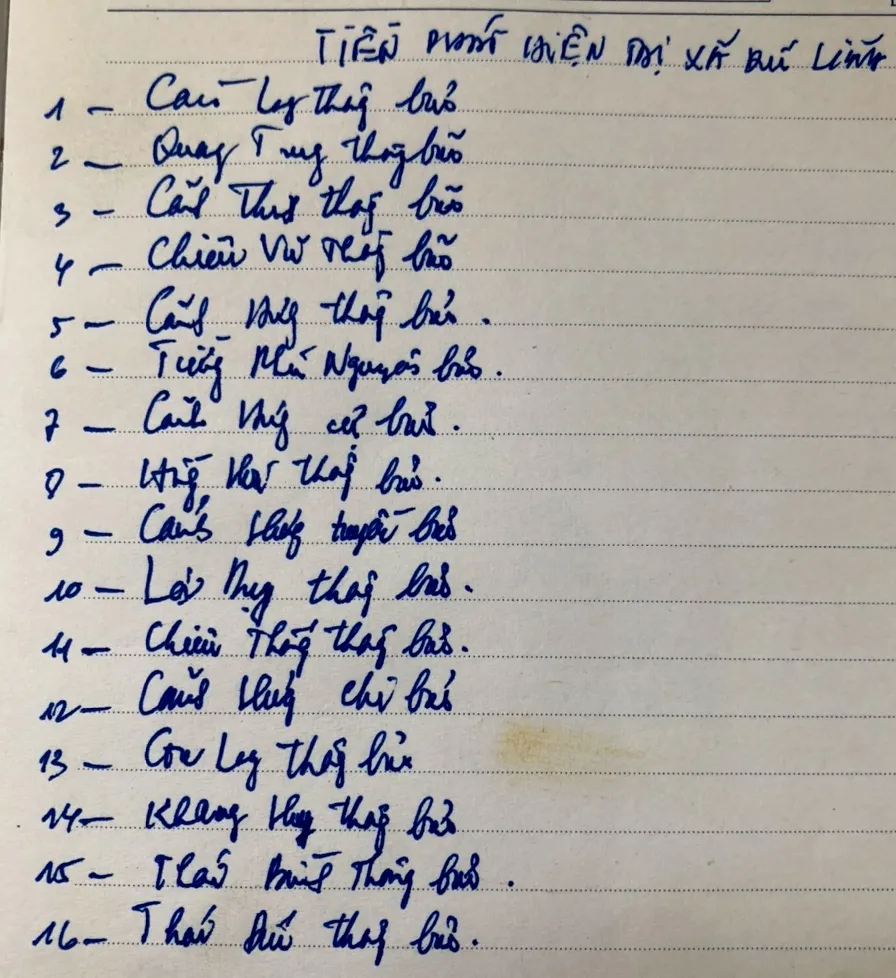 TIỀN PHÁT HIỆN TẠI XÃ HẢI LĂNG
1 – Càn Long thông bảo
2 – Quang Trung thông bảo
3 – Cảnh Thịnh thông bảo
4 – Chiêu Vũ thông bảo
5 – Cảnh Hưng thông bảo.
6 – Tường Phù Nguyên bảo.
7 – Cảnh Hưng cự bảo.
8 – Hồng Hóa thông bảo.
9 – Cảnh Hưng tuyền bảo
10 – Lợi Dụng thông bảo.
11 – Chiêu Thống thông bảo.
12 – Cảnh Hưng chí bảo
13 – Gia Long thông bảo
14 – Khang Hy thông bảo
15 – Thái Bình thông bảo.
16 – Thái Đức thông bảo.